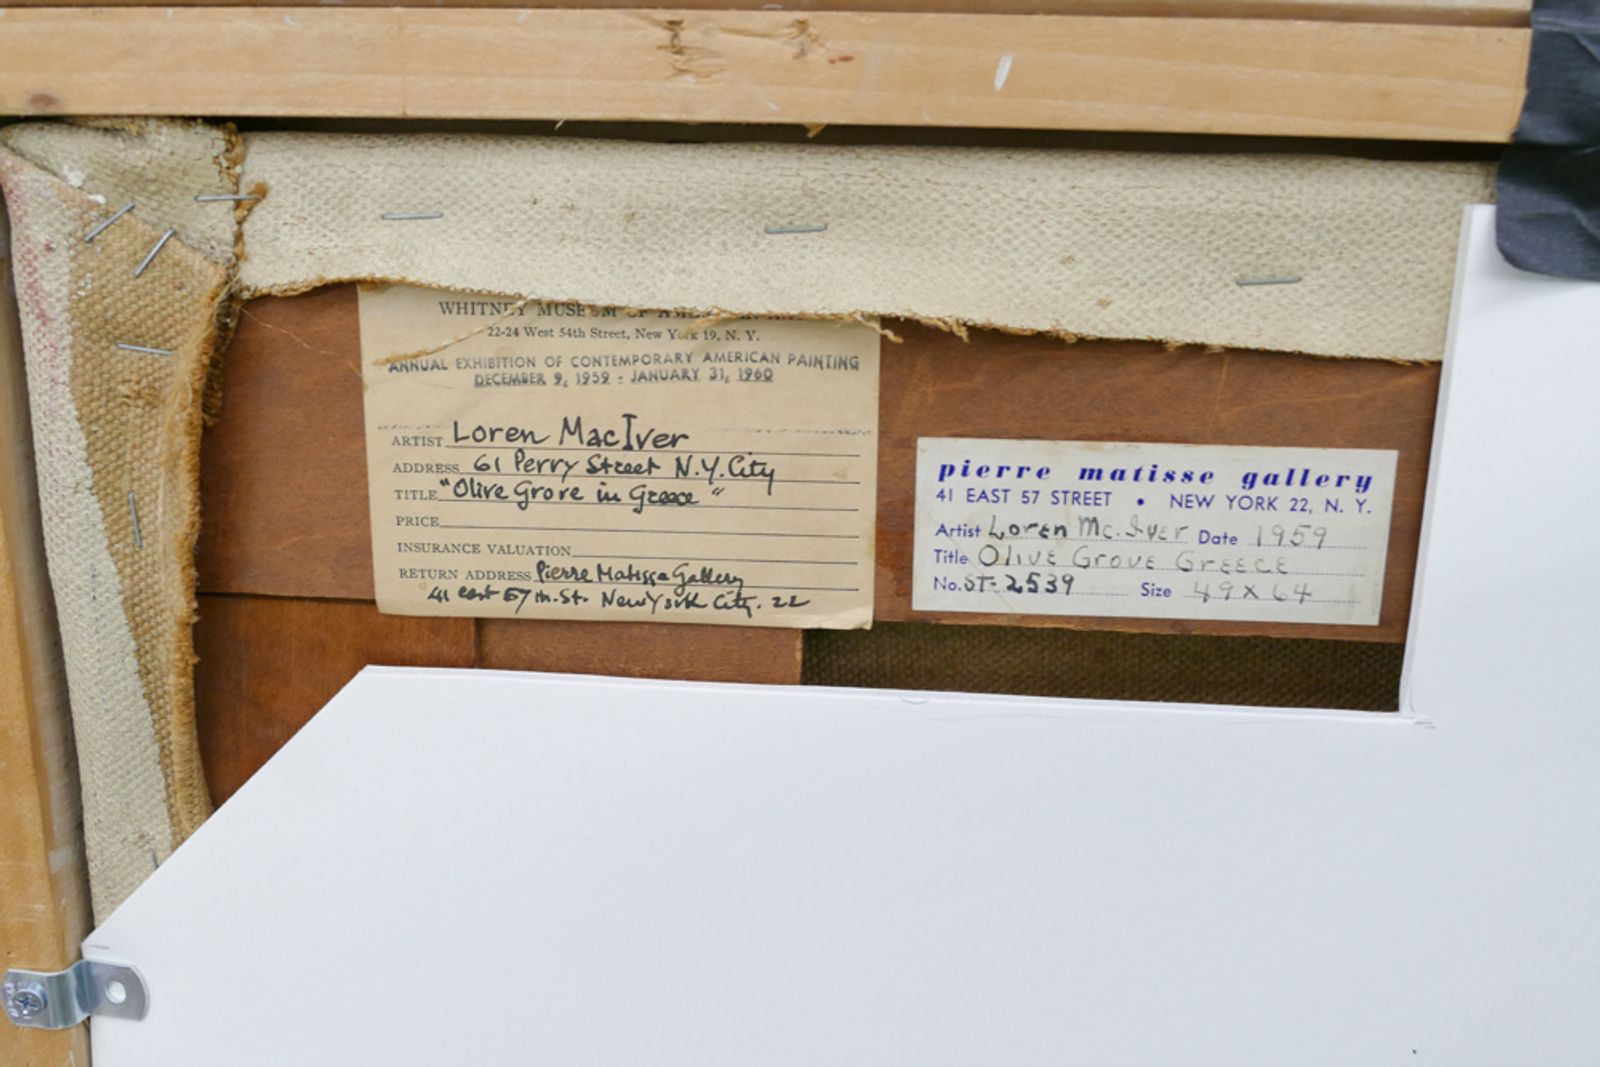 WHITNEY MUSEUM OF AMERICAN ART
22-24 West 54th Street, New York 19, N. Y.
ANNUAL EXHIBITION OF CONTEMPORARY AMERICAN PAINTING
DECEMBER 9, 1959 - JANUARY 31, 1960
ARTIST Loren MacIver
ADDRESS 61 Perry Street N.Y.City
TITLE "Olive Grove in Greece"
PRICE
INSURANCE VALUATION
RETURN ADDRESS Pierre Matisse Gallery
41 east 57th.St. New York City. 22
pierre matisse gallery
41 EAST 57 STREET • NEW YORK 22, N. Y.
Artist Loren Mc.Iver Date 1959
Title Olive Grove Greece
No. ST-2539 Size 49 x 64